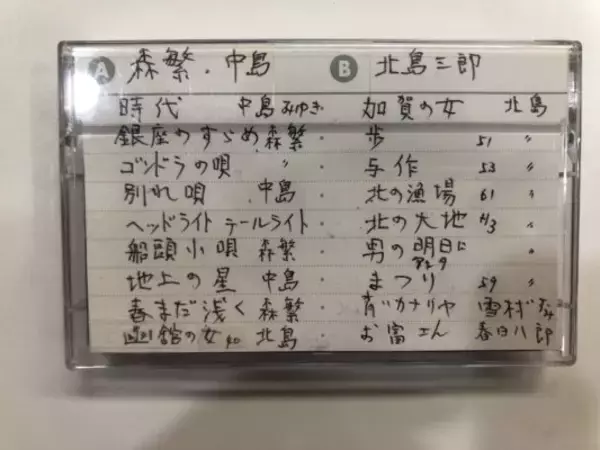 A 森繁.中島
時代 中島みゆき
銀座のすゞめ 森繁 .
ゴンドラの唄 〃 .
別れ唄 中島 .
ヘッドライト テールライト .
船頭小唄 森繁 .
地上の星 中島 .
春まだ浅く 森繁 .
函館の女 40 北島 .
B 北島三郎
加賀の女 北島
歩 51 〃
与作 53 〃
北の漁場 61 〃
北の大地 H3 〃
男の明日に 〃
まつり 59 〃
カナリヤ 雪村
お富さん 春日八郎